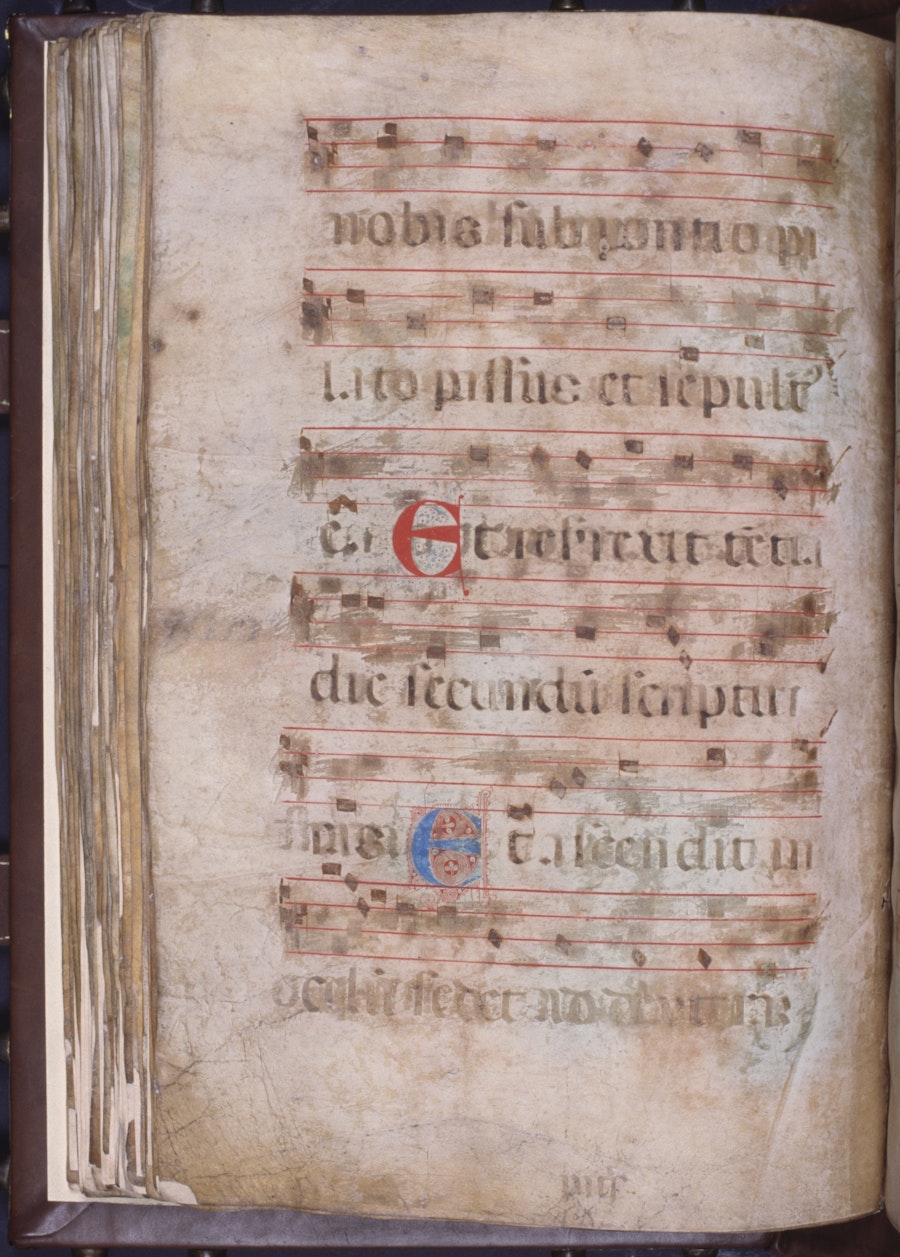 nobis sub pontio pi
lato passus et sepult
est Et resurrexit tertia
die secundū scriptur
Et ascendit in
celū sedet ad